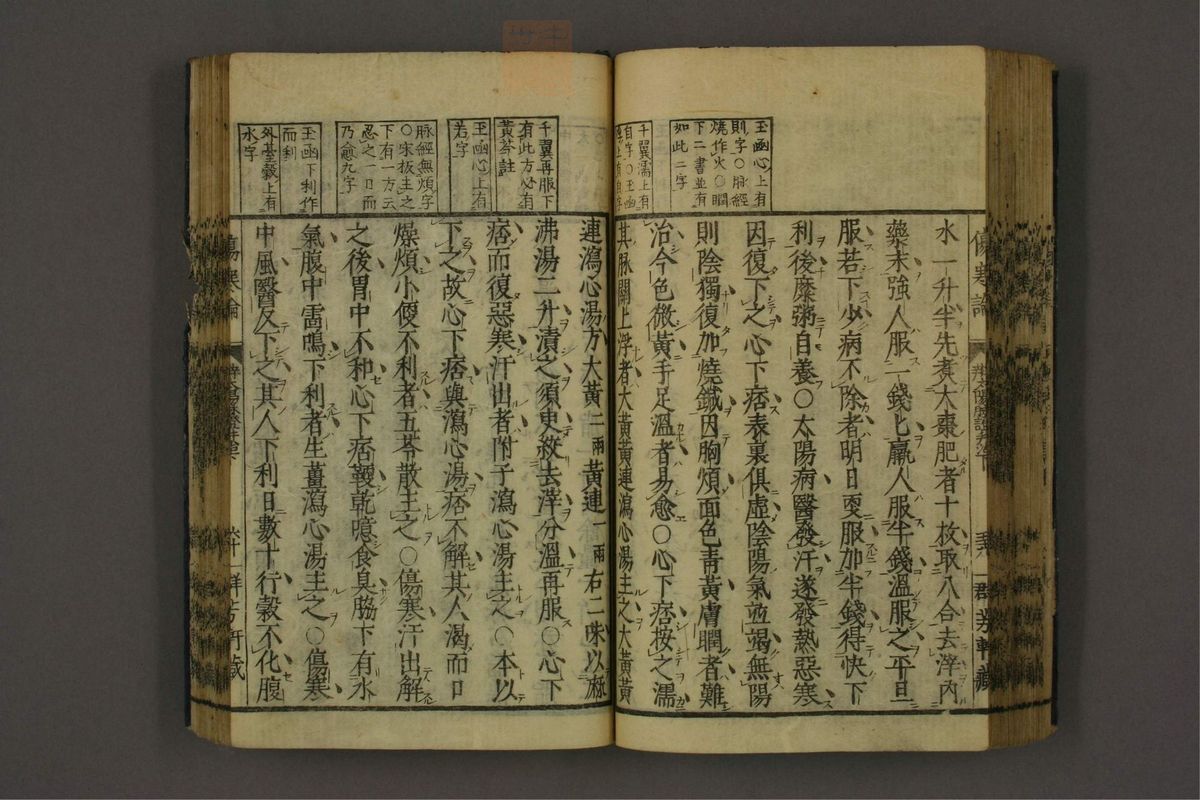 傷寒論
玉函心上有
則字〇脉經
燒作火〇瞤
下二書並有
如此二字
千翼濡上有
自字〇玉函
水一升半先煑大棗肥者十枚取八合去滓內
藥末強人服一錢匕羸人服半錢溫服之平旦
服若下少病不除者明日更服加半錢得快下
利後糜粥自養〇太陽病醫發汗遂發熱惡寒
因復下之心下痞表裏俱虛陰陽氣並竭無陽
則陰獨復加燒鍼因胸煩面色青黃膚瞤者難
治今色微黃手足溫者易愈〇心下痞按之濡
其脉關上浮者大黃黃連瀉心湯主之大黃黃
千翼再服下
有此方必有
黃芩註
玉函心上有
若字
脉經無煩字
〇宋板主之
下有一方云
忍之一日而
乃愈九字
玉函下利作
而利
外臺穀上有
水字
連瀉心湯方大黃二兩黃連一兩右二味以麻
沸湯二升漬之須臾絞去滓分溫再服〇心下
痞而復惡寒汗出者附子瀉心湯主之〇本以
下之故心下痞與瀉心湯痞不解其人渴而口
燥煩小便不利者五苓散主之〇傷寒汗出解
之後胃中不和心下痞鞕乾噫食臭脇下有水
氣腹中雷鳴下利者生薑瀉心湯主之〇傷寒
中風醫反下之其人下利日數十行穀不化腹
傷寒論